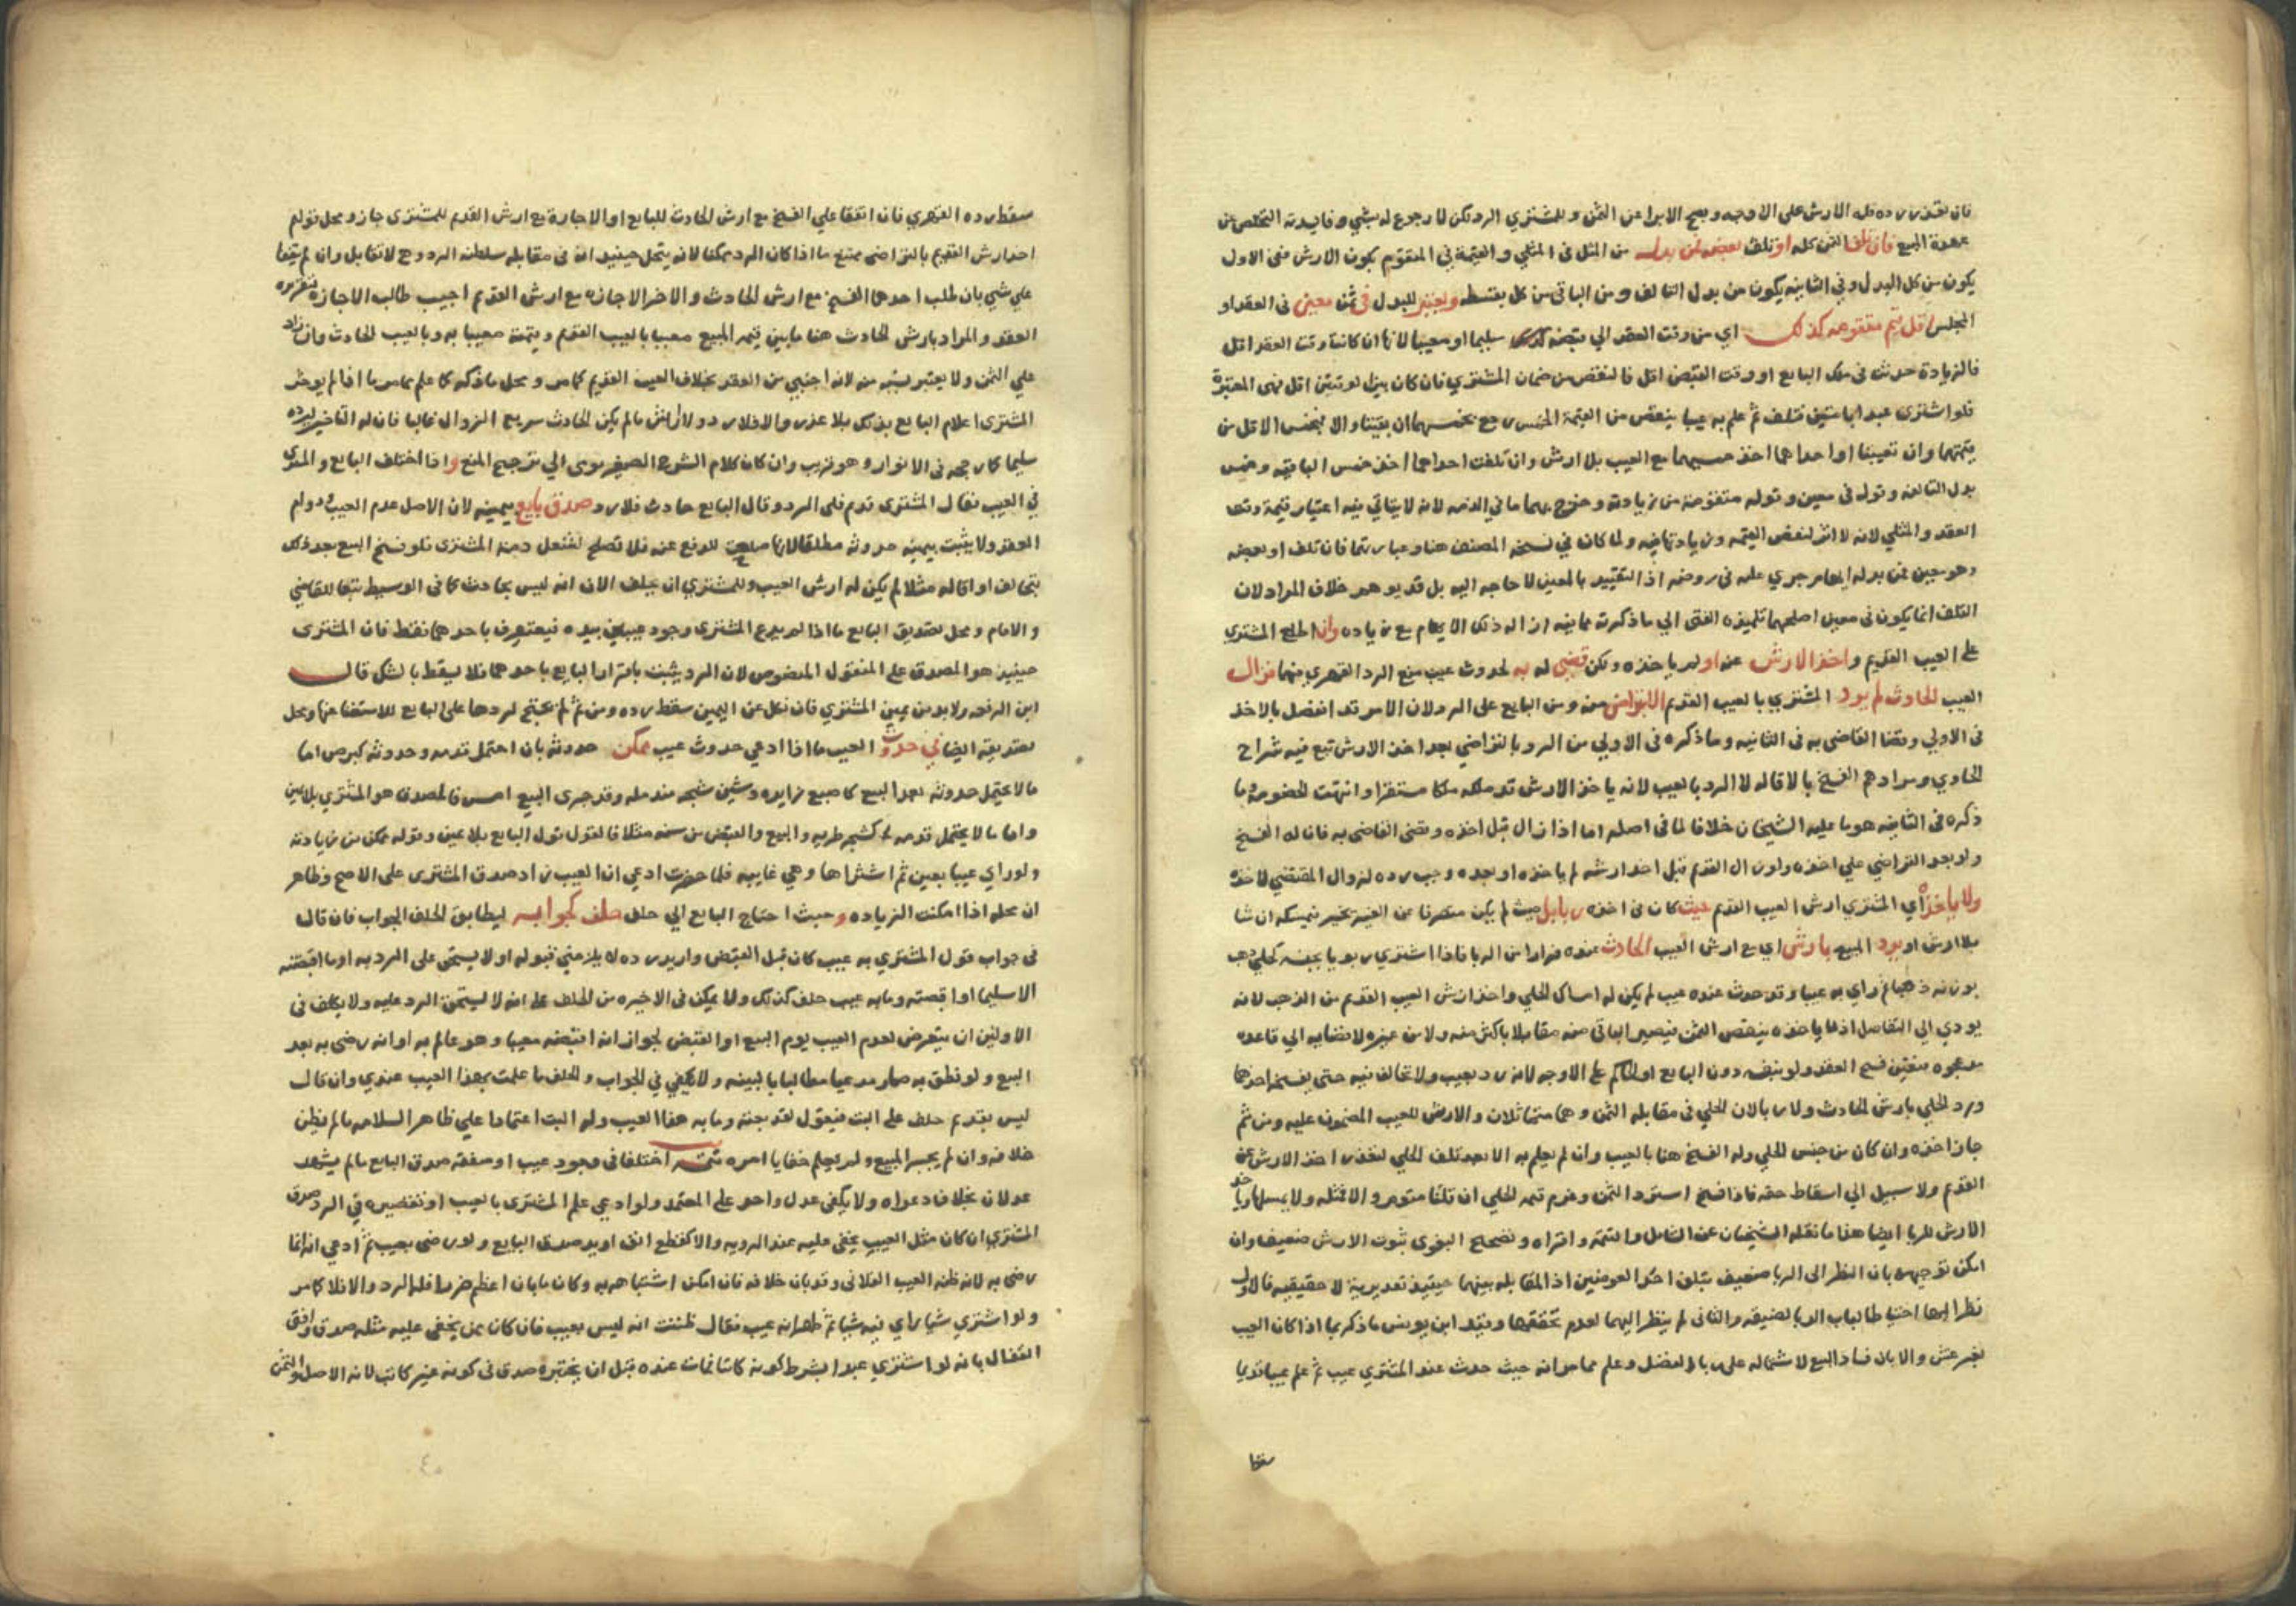 فان تعذر رده فله الارش على الاوجه ويصح الابرا من الثمن وللمشتري الرد لكن لا رجوع له بشي وفايدته التخلص من
عهدة المبيع فان تلف الثمن كله او تلف بعضه فمن بدله من المثل في المثلي والقيمة في المتقوم يكون الارش ففي الاول
يكون من كل البدل وفي الثانيه يكون من بدل التالف ومن الباقي من كل بقسطه ويعتبر للبدل في ثمن معين في العقد او
المجلس اقل قيم متقومه كذلك اي من وقت العقد الي قبضه سليما او معيبا لانها ان كانت وقت العقد اقل
فالزيادة حدثت في ملك البايع او وقت القبض اقل فالنقص من ضمان المشتري فان كان بينهما اقل فهي المعتبرة
فلو اشترى عبدا بامتين فتلف ثم علم به عيبا ينقص من القيمة الخمس رجع بخمسهما ان بقيتا والا بخمس الاقل من
قيمتهما وان تعيبتا او احداهما اخذ خمسيهما مع العيب بلا ارش وان تلفت احداهما اخذ خمس الباقيه وخمس
بدل التالفه وقوله في معين وقوله متقومة من زيادته وخرج بهما ما في الذمه لانه لا يتاتي فيه اعتبار قيمة وقت
العقد والمثلي لانه لا اثر لنقص القيمه وزيادتها فيه ولما كان في نسخه المصنف هنا وعبارتها فان تلف او بعضه
وهو معين فمن بدله ايهام جري عليه في روضه اذ التقييد بالمعين لا حاجه اليه بل قد يوهم خلاف المراد لان
التلف انما يكون في معين اصلحها تلميذه الفتى الي ما ذكرته مما فيه ازاله ذلك الايهام مع زياده وان اطلع المشتري
على العيب القديم واخذ الارش عنه او لم ياخذه ولكن قضي له به لحدوث عيب منع الرد القهري فيهما فزال
العيب الحادث لم يرد المشتري بالعيب القديم الا بتراض منه ومن البايع على الرد لان الامر قد انفصل بالاخذ
في الاولي وقضا القاضي به في الثانيه وما ذكره في الاولي من الرد بالتراضي بعد اخذ الارش تبع فيه شراح
الحاوي ومرادهم الفسخ بالاقاله لا الرد بالعيب لانه ياخذ الارش قد ملكه ملكا مستقرا وانتهت الخصومة وما
ذكره في الثانيه هو ما عليه الشيخان خلافا لما في اصله اما اذا زال قبل اخذه وقضى القاضي به فان له الفسخ
ولو بعد التراضي علي اخذه ولو زال القديم قبل اخذ ارشه لم ياخذه او بعده وجب رده لزوال المقتضي لاخذه
ولا ياخذ اي المشتري ارش العيب القديم حيث كان في اخذه ربا بل حيث لم يكن يخير فيمسكه ان شا
بلا ارش او يرد المبيع بارش اي مع ارش العيب الحادث عنده فرارا من الربا فاذا اشتري ربويا بجنسه كحلي ذهب
بوزنه ذهبا ثم راي به عيبا وقد حدث عنده عيب لم يكن له امساك الحلي واخذ ارش العيب القديم من الذهب لانه
يودي الي التفاضل اذ ما ياخذه ينقص الثمن فيصير الباقي منه مقابلا باكثر منه ولا من غيره لافضايه الي قاعده
مد عجوه فتعين فسخ العقد ولو بنفسه دون البايع او الحاكم على الاوجه لانه رد بعيب ولا تحالف فيه حتى يفسخه احدهما
ورد الحلي بارش الحادث ولا ربا لان الحلي في مقابله الثمن وهما متماثلان والارش للعيب المضمون عليه ومن ثم
جاز اخذه وان كان من جنس الحلي وله الفسخ هنا بالعيب وان لم يعلم به الا بعد تلف الحلي لتعذر اخذ الارش عن
القديم ولا سبيل الي اسقاط حقه فاذا فسخ استرد الثمن وغرم قيمه الحلي ان قلنا متقوم والا فمثله ولا يمسكها وياخذ
الارش للربا ايضا هذا ما نقله الشيخان عن الشامل والتتمه واقراه وتصحيح البغوي ثبوت الارش ضعيف وان
امكن توجيهه بان النظر الى الربا ضعيف بتلف احد العوضين اذ المقابله بينهما حينيذ تقديرية لا حقيقيه فالاول
نظرا اليها احتياطا لباب الربا لضيقه والثاني لم ينظر اليها لعدم تحققها وقيد ابن يونس ما ذكر بما اذا كان العيب
بغير غش والا بان فساد البيع لاشتماله على ربا الفضل وعلم مما مر انه حيث حدث عند المشتري عيب ثم علم عيبا قديما
سقط
سقط رده القهري فان اتفقا علي الفسخ مع ارش الحادث للبايع او الاجازة مع ارش القديم للمشتري جاز ومحل قولهم
اخذ ارش القديم بالتراضي ممتنع ما اذا كان الرد ممكنا لانه يتخيل حينيذ انه في مقابله سلطنه الرد وهي لا تقابل وان لم يتفقا
علي شي بان طلب احدهما الفسخ مع ارش الحادث والاخر الاجازه مع ارش القديم اجيب طالب الاجازه لتقريره
العقد والمراد بارش الحادث هنا ما بين قيمه المبيع معيبا بالعيب القديم وقيمته معيبا به وبالعيب الحادث وان زاد
علي الثمن ولا يعتبر نسبته منه لانه اجنبي من العقد بخلاف العيب القديم كما مر ومحل ما ذكره كما علم مما مر ما اذا لم يوخر
المشتري اعلام البايع بذلك بلا عذر والا فلا رد ولا ارش ما لم يكن الحادث سريع الزوال غالبا فان له التاخير ليرده
سليما كما رجحه في الانوار وهو قريب وان كان كلام الشرح الصغير يومى الي ترجيح المنع واذا اختلف البايع والمشتري
في العيب فقال المشتري قديم فلي الرد وقال البايع حادث فلا رد صدق بايع بيمينه لان الاصل عدم العيب ودوام
العقد ولا يثبت بيمينه حدوثه مطلقا لانها صلحت للدفع عنه فلا تصلح لشغل ذمة المشتري فلو فسخ البيع بعد ذلك
بتحالف او اقاله مثلا لم يكن له ارش العيب وللمشتري ان يحلف الان انه ليس بحادث كما في الوسيط تبعا للقاضي
والامام ومحل تصديق البايع ما اذا لم يدع المشتري وجود عيبين بيده فيعترف باحدهما فقط فان المشتري
حينيذ هو المصدق على المنقول المنصوص لان الرد يثبت باقرار البايع باحدهما فلا يسقط بالشك قال
ابن الرفعه ولا بد من يمين المشتري فان نكل عن اليمين سقط رده ومن ثم لم يحتج لردها على البايع للاستغنا عنها ومحل
تصديقه ايضا في حدوث العيب ما اذا ادعي حدوث عيب ممكن حدوثه بان احتمل قدمه وحدوثه كبرص اما
ما لا يحتمل حدوثه بعد البيع كاصبع زايده وشين شجه مندمله وقد جرى البيع امس فالمصدق هو المشتري بلا يمين
واما ما لا يحتمل قدمه كشجه طريه والبيع والقبض من سنه مثلا فالقول قول البايع بلا يمين وقوله ممكن من زيادته
ولو راي عيبا بعين ثم اشتراها وهي غايبه فلما حضرت ادعي ان العيب زاد صدق المشتري على الاصح وظاهر
ان محله اذا امكنت الزياده وحيث احتاج البايع الي حلف حلف كجوابه ليطابق الحلف الجواب فان قال
في جواب قول المشتري به عيب كان قبل القبض واريد رده لا يلزمني قبوله او لا يستحق علي الرد به او ما اقبضته
الا سليما او اقبضته وما به عيب حلف كذلك ولا يكفي في الاخيره من الحلف على انه لا يستحق الرد عليه ولا يكلف في
الاولين ان يتعرض لعدم العيب يوم البيع او القبض لجواز انه اقبضه معيبا وهو عالم به او انه رضي به بعد
البيع ولو نطق به صار مدعيا مطالبا بالبينه ولا يكفي في الجواب والحلف ما علمت بهذا العيب عندي وان كان
ليس بقديم حلف على البت فيقول لقد بعته وما به هذا العيب وله البت اعتمادا علي ظاهر السلامه ما لم يظن
خلافه وان لم يخبر المبيع ولم يعلم خفايا امره تتمه اختلفا في وجود عيب او صفته صدق البايع ما لم يشهد
عدلان بخلاف دعواه ولا يكفي عدل واحد على المعتمد ولو ادعي علم المشتري بالعيب او تقصيره في الرد صدق
المشتري ان كان مثل العيب يخفى عليه عند الرويه والا كقطع انف او يد صدق البايع ولو رضي بعيب ثم ادعي انه انما
رضي به لانه ظنه العيب الفلاني وقد بان خلافه فان امكن اشتباهه به وكان ما بان اعظم ضررا فله الرد والا فلا كما مر
ولو اشتري شيا راي فيه شيا ثم ظهر انه عيب فقال ظننت انه ليس بعيب فان كان ممن يخفى عليه مثله صدق وافتى
القفال بانه لو اشتري عبدا بشرط كونه كاتبا فمات عنده قبل ان يختبره صدق في كونه غير كاتب لانه الاصل والثمن
٤٠